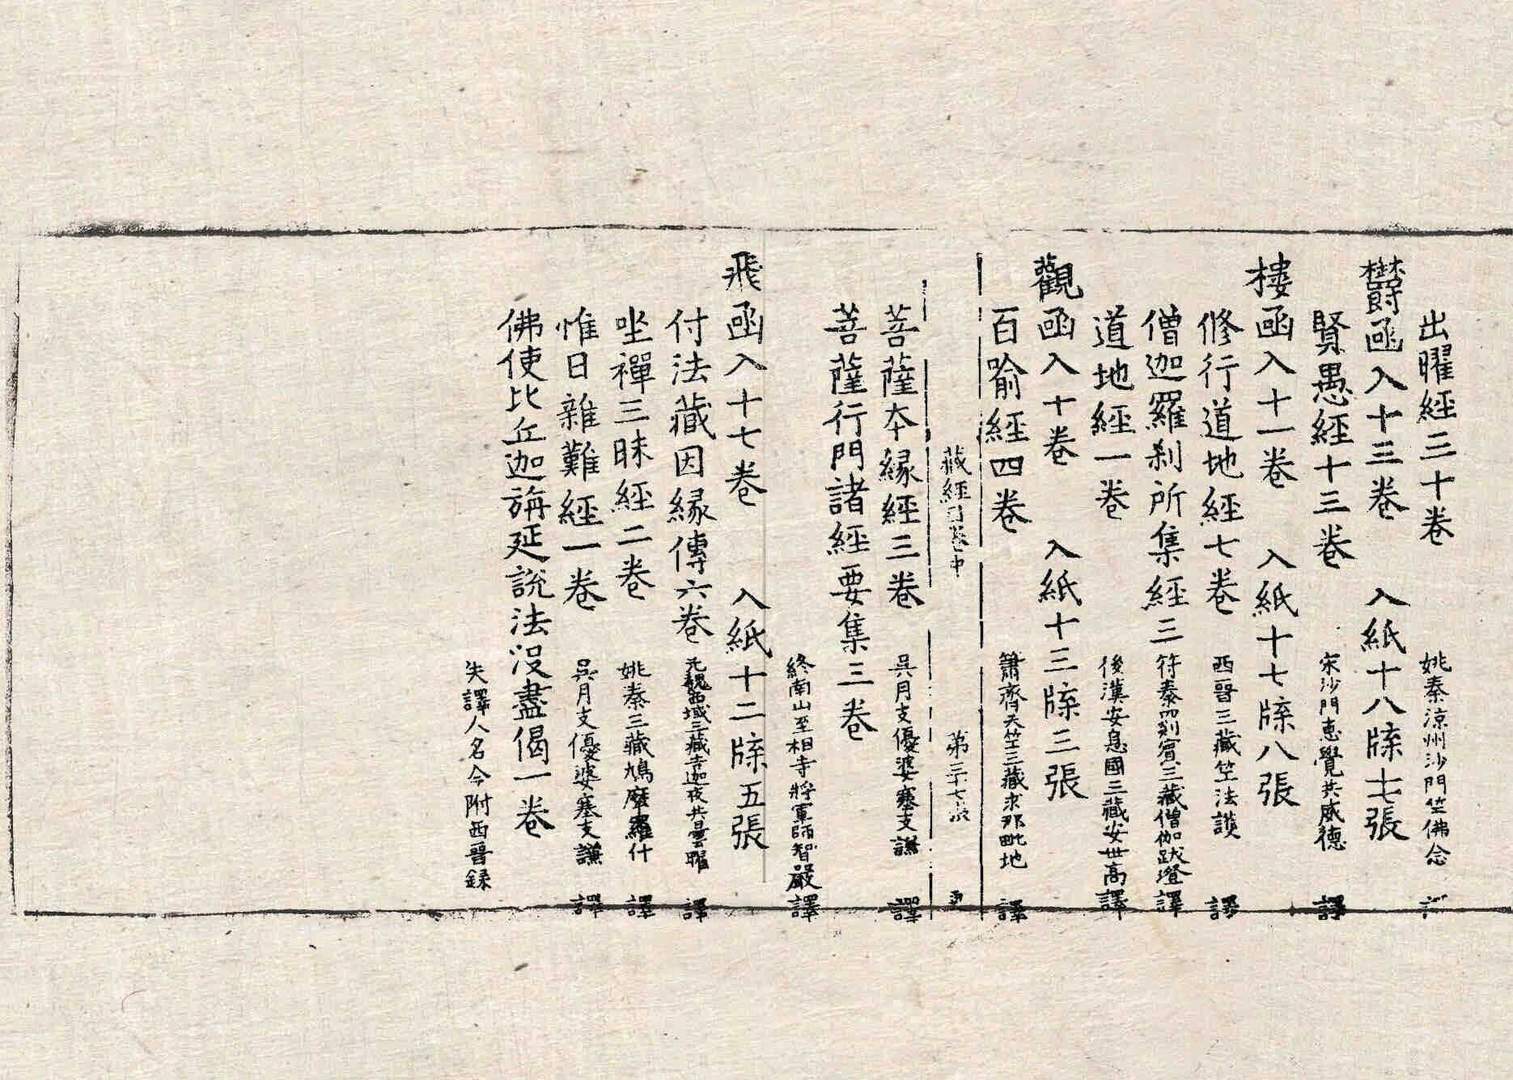 出曜經三十卷 姚秦涼州沙門竺佛念 譯
鬱函入十三卷 入紙十八牒七張
賢愚經十三卷 宋沙門惠覺共威德 譯
樓函入十一卷 入紙十七牒八張
修行道地經七卷 西晉三藏竺法護 譯
僧迦羅刹所集經三 符秦罽賓三藏僧伽跋澄譯
道地經一卷 後漢安息國三藏安世高譯
觀函入十卷 入紙十三牒三張
百喻經四卷 蕭齊天竺三藏求那毗地 譯
藏經目卷中 第三十七張
菩薩本緣經三卷 吳月支優婆塞支謙 譯
菩薩行門諸經要集三卷
終南山至相寺將軍師智嚴譯
飛函入十七卷 入紙十二牒五張
付法藏因緣傳六卷 元魏西域三藏吉迦夜共曇曜 譯
坐禪三昧經二卷 姚秦三藏鳩摩羅什 譯
惟日雜難經一卷 吳月支優婆塞支謙 譯
佛使比丘迦旃延說法沒盡偈一卷
失譯人名今附西晉錄